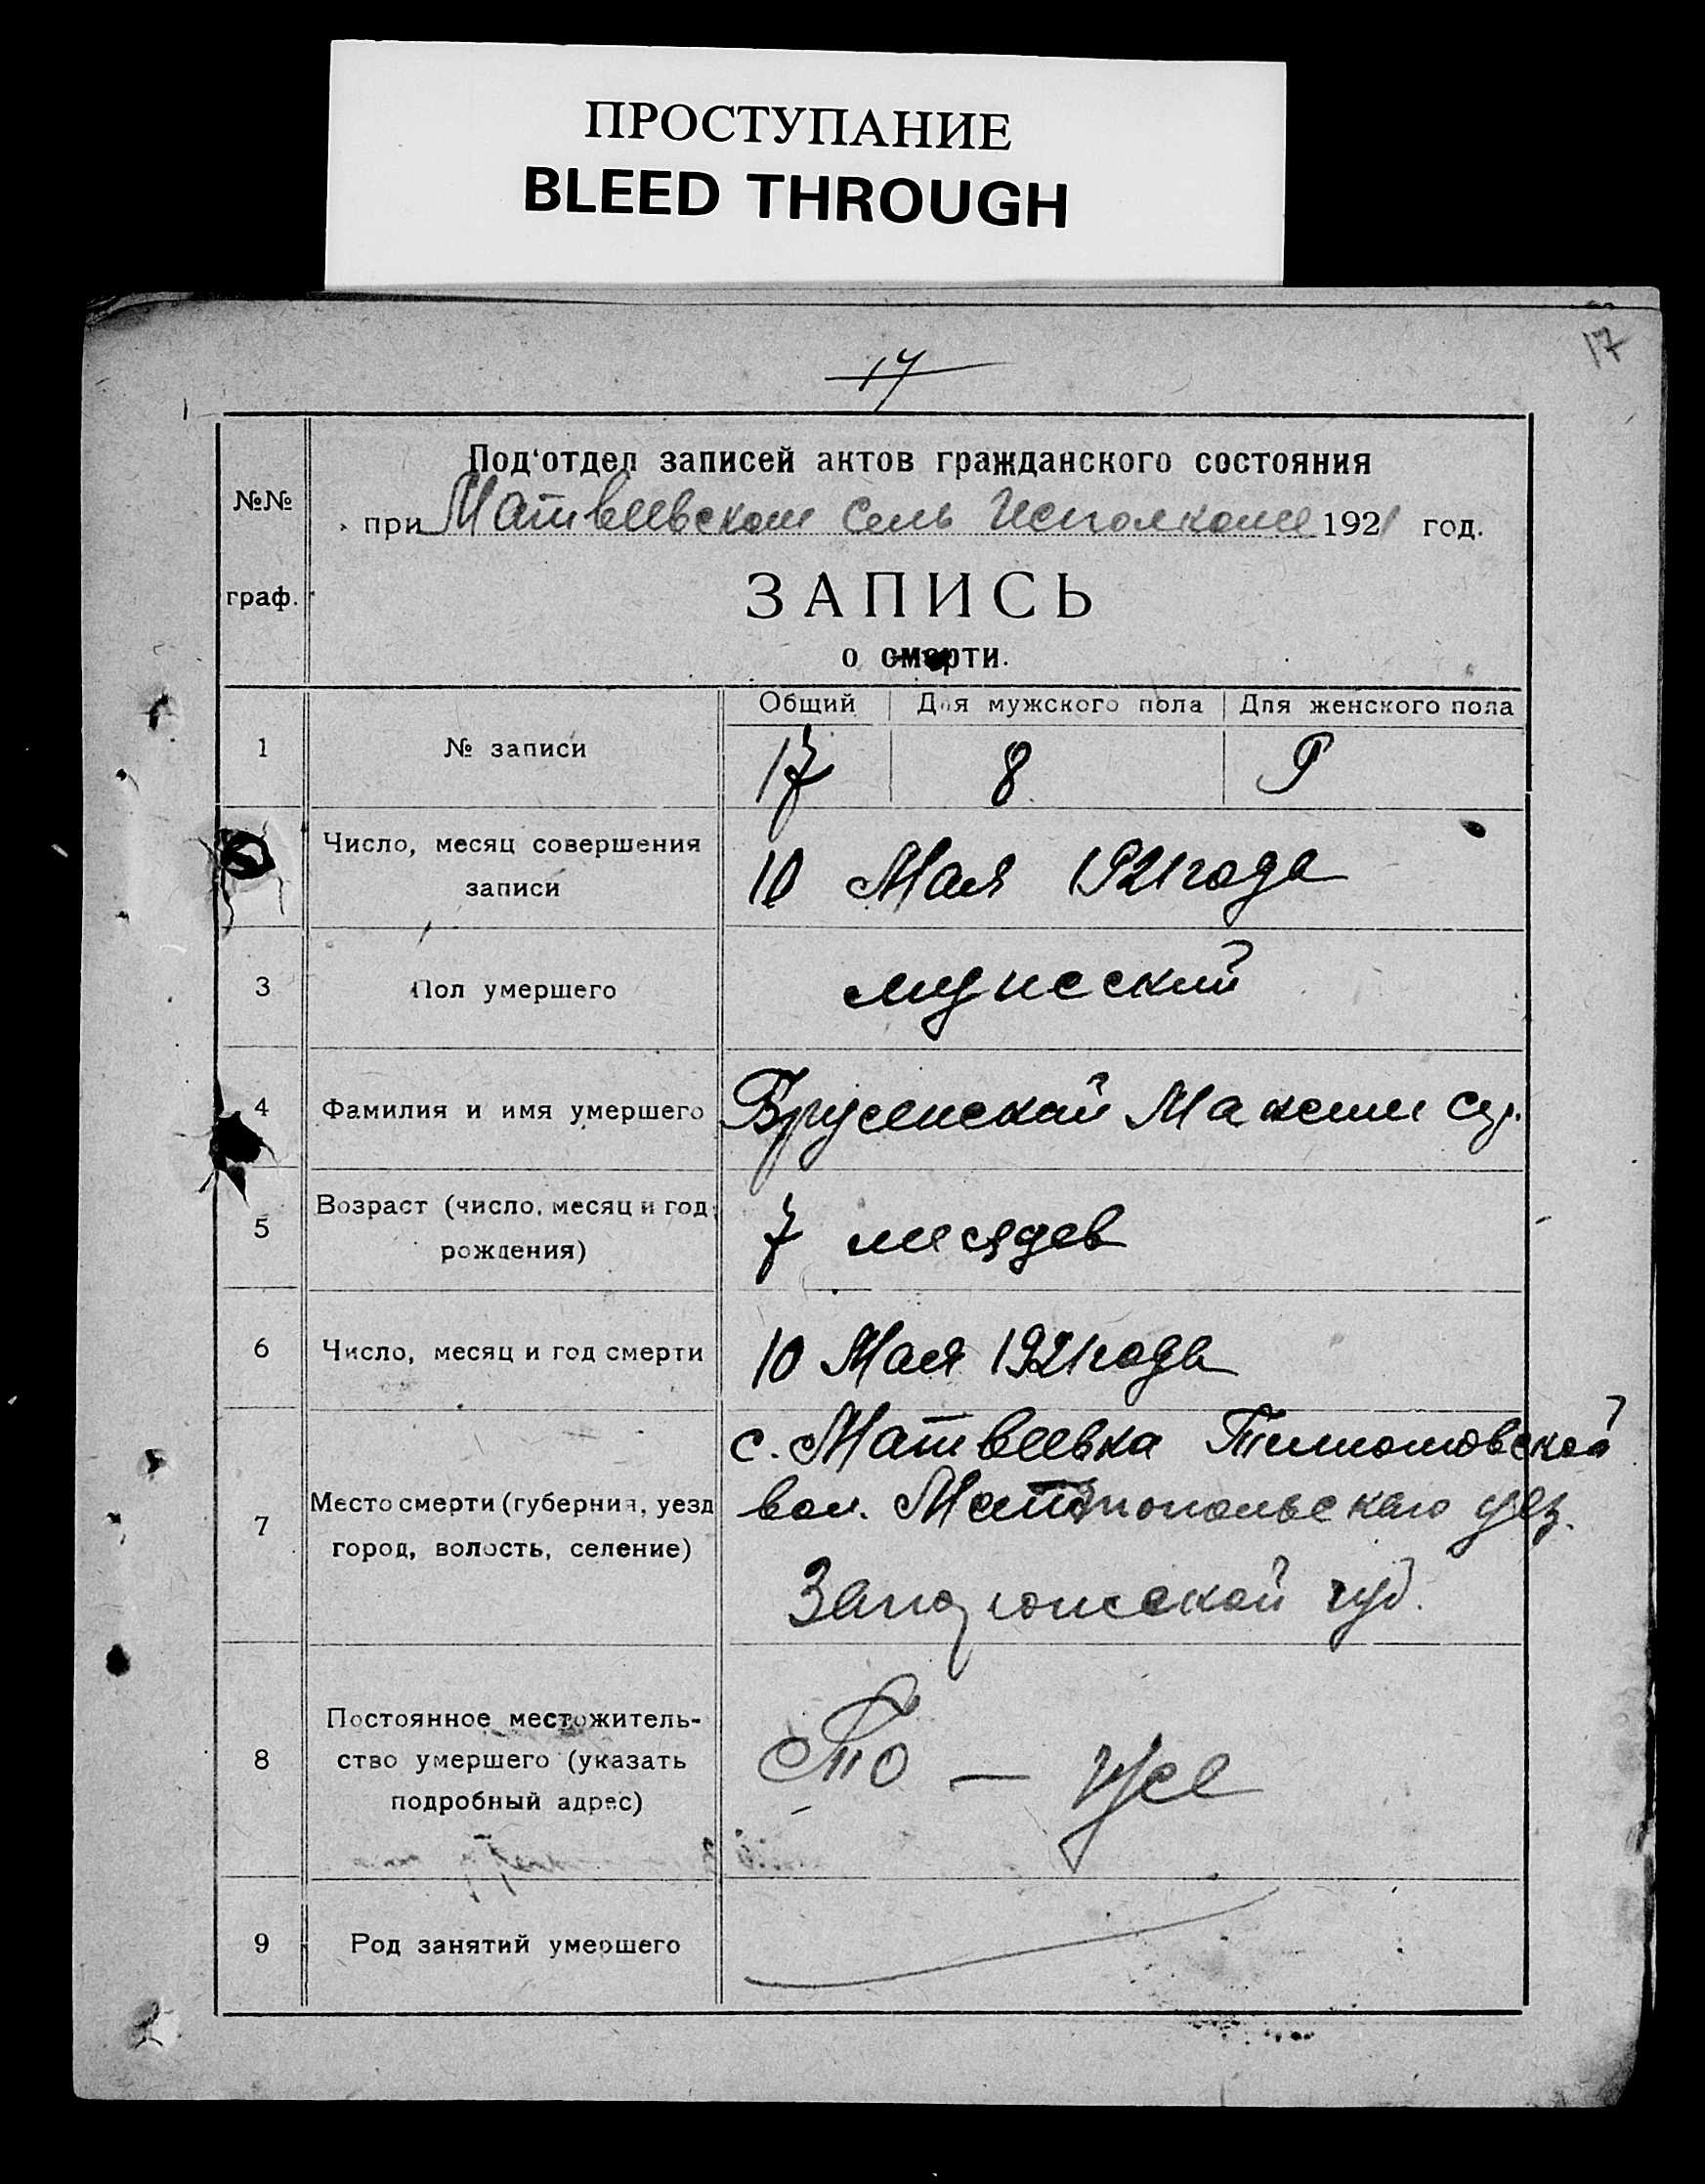 ПРОСТУПАНИЕ
BLEED THROUGH
17
17
№№
граф.
Под'отдел записей актов гражданского состояния
при Матвеевском Сель Исполкоме 1921 год.
ЗАПИСЬ
о смерти.
Общий Для мужского пола Для женского пола
1 № записи 17 8 9
Число, месяц совершения
записи
10 Мая 1921 года
3 Пол умершего мужеский
4 Фамилия и имя умершего Брусенской Максим
5 Возраст (число, месяц и год
рождения)
7 месяцев
6 Число, месяц и год смерти 10 Мая 1921 года
7 Место смерти (губерния, уезд
город, волость, селение)
с. Матвеевка
вол. уез.
губ.
8 Постоянное местожитель-
ство умершего (указать
подробный адрес)
То — же
9 Род занятий умершего